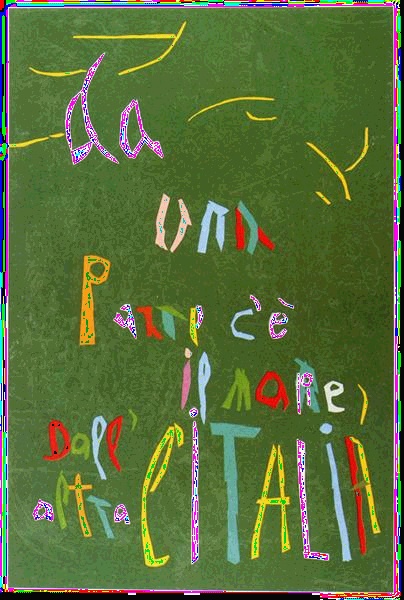 da
una
Parte c'è
il mare,
Dall'
altra l'iTALiA